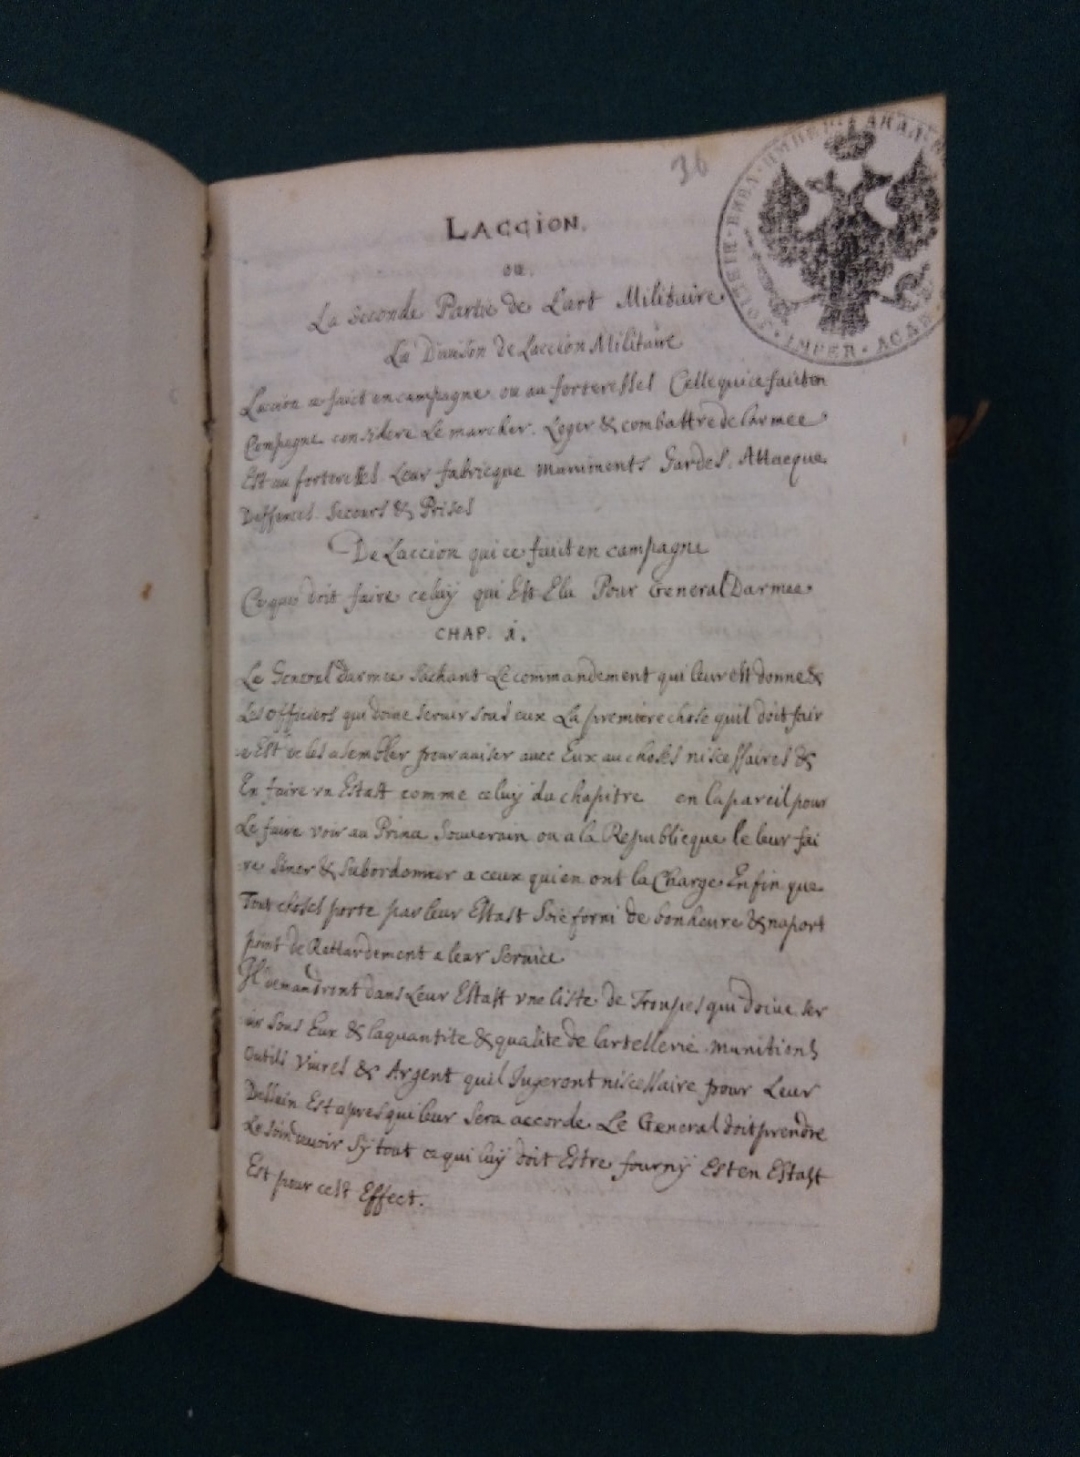 36
БИБЛ. ИМПЕР. АКАДЕМ
IMPER · ACAD
LACCION.
ou.
La Seconde Partie de Lart Militaire
La Diuison de Laccion Militaire
Laccion ce faict en campagne ou au forteresses Celle qui ce faict en
Campagne considere Le marcher. Loger & combattre de larmee
Est au forteresses Leur fabricque muniments Gardes. Attacque
Deffences. Secours & Prises
De Laccion qui ce faict en campagne
Ce que doit faire celuy qui Est Elu Pour General Darmee
CHAP. 1.
Le General Darmee Sachant Le commandement qui leur est donne &
Les officiers qui doiue seruir sous eux La premiere chose quil doit fair
e Est de les asembler pour auiser auec Eux au choses niscessaires &
En faire vn Estast comme celuy du chapitre en lapareil pour
Le faire voir au Prince Souuerain ou a la Republicque le leur fai
re Siner & Subordonner a ceux qui en ont la Charge Enfin que
Tout choses porte par leur Estast Soie forni de bonheure & naport
point de Rettardement a leur Seruice
Il demandront dans Leur Estast vne liste de Troupes qui doiue ser
uir Sous Eux & la quantite & qualite de lartellerie munitions
Outils Viures & Argent quil Jugeront niscessaire pour Leur
Dessein Est apres qui leur Sera accorde Le General doit prendre
Le Soin de uoir Sy tout ce qui luy doit Estre fourny Est en Estast
Est pour cest Effect.